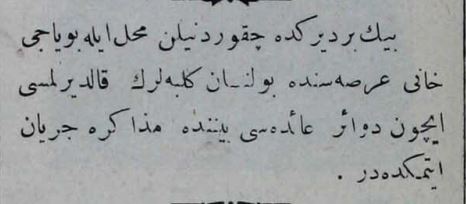 بيك بر ديركده چقور دنيلن محل ايله بوياجى
خانى عرصه‌سنده بولنان كلبه‌لرك قالديرلمسى
ايچون دوائر عائده‌سى بيننده مذاكره جريان
ايتمكده‌در .